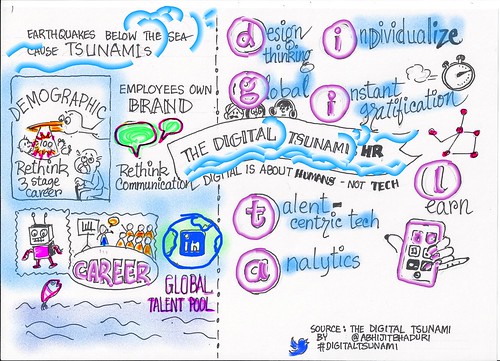 EARTHQUAKES BELOW THE SEA-
CAUSE TSUNAMIS
DEMOGRAPHIC
100
Rethink
3 stage
career
EMPLOYEES OWN
BRAND
Rethink
Communication
CAREER
in
GLOBAL
TALENT POOL
design
thinking
individualize
global
instant
gratification
THE DIGITAL TSUNAMI HR
DIGITAL IS ABOUT HUMANS - NOT TECH
learn
talent-
centric tech
analytics
SOURCE: THE DIGITAL TSUNAMI
BY @ABHIJITBHADURI
#DIGITALTSUNAMI